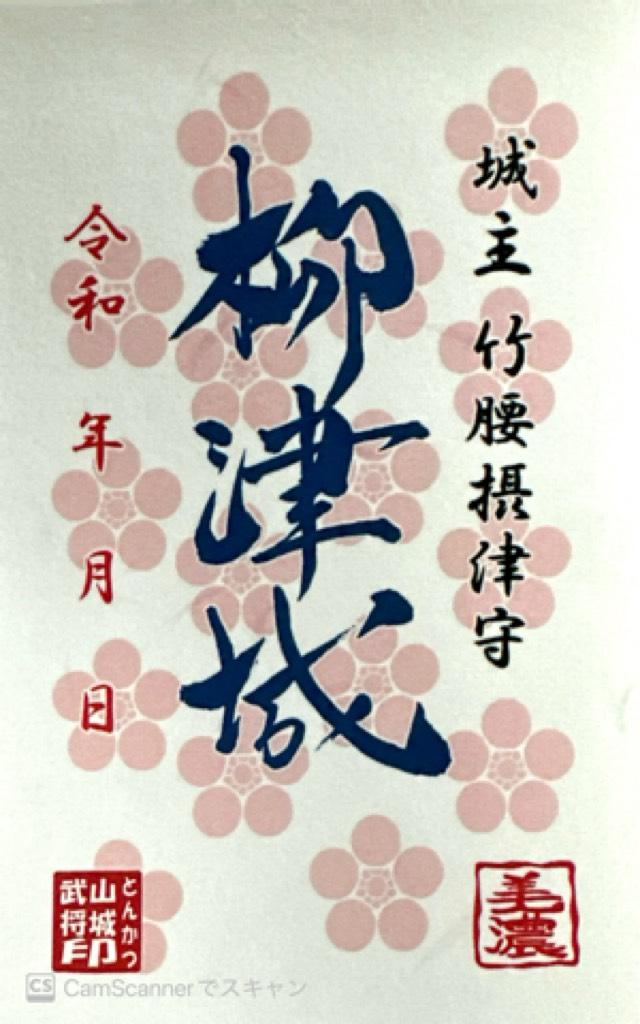 城主 竹腰摂津守
柳津城
令和 年 月 日
美濃
とんかつ
山城
武将印
CS CamScannerでスキャン